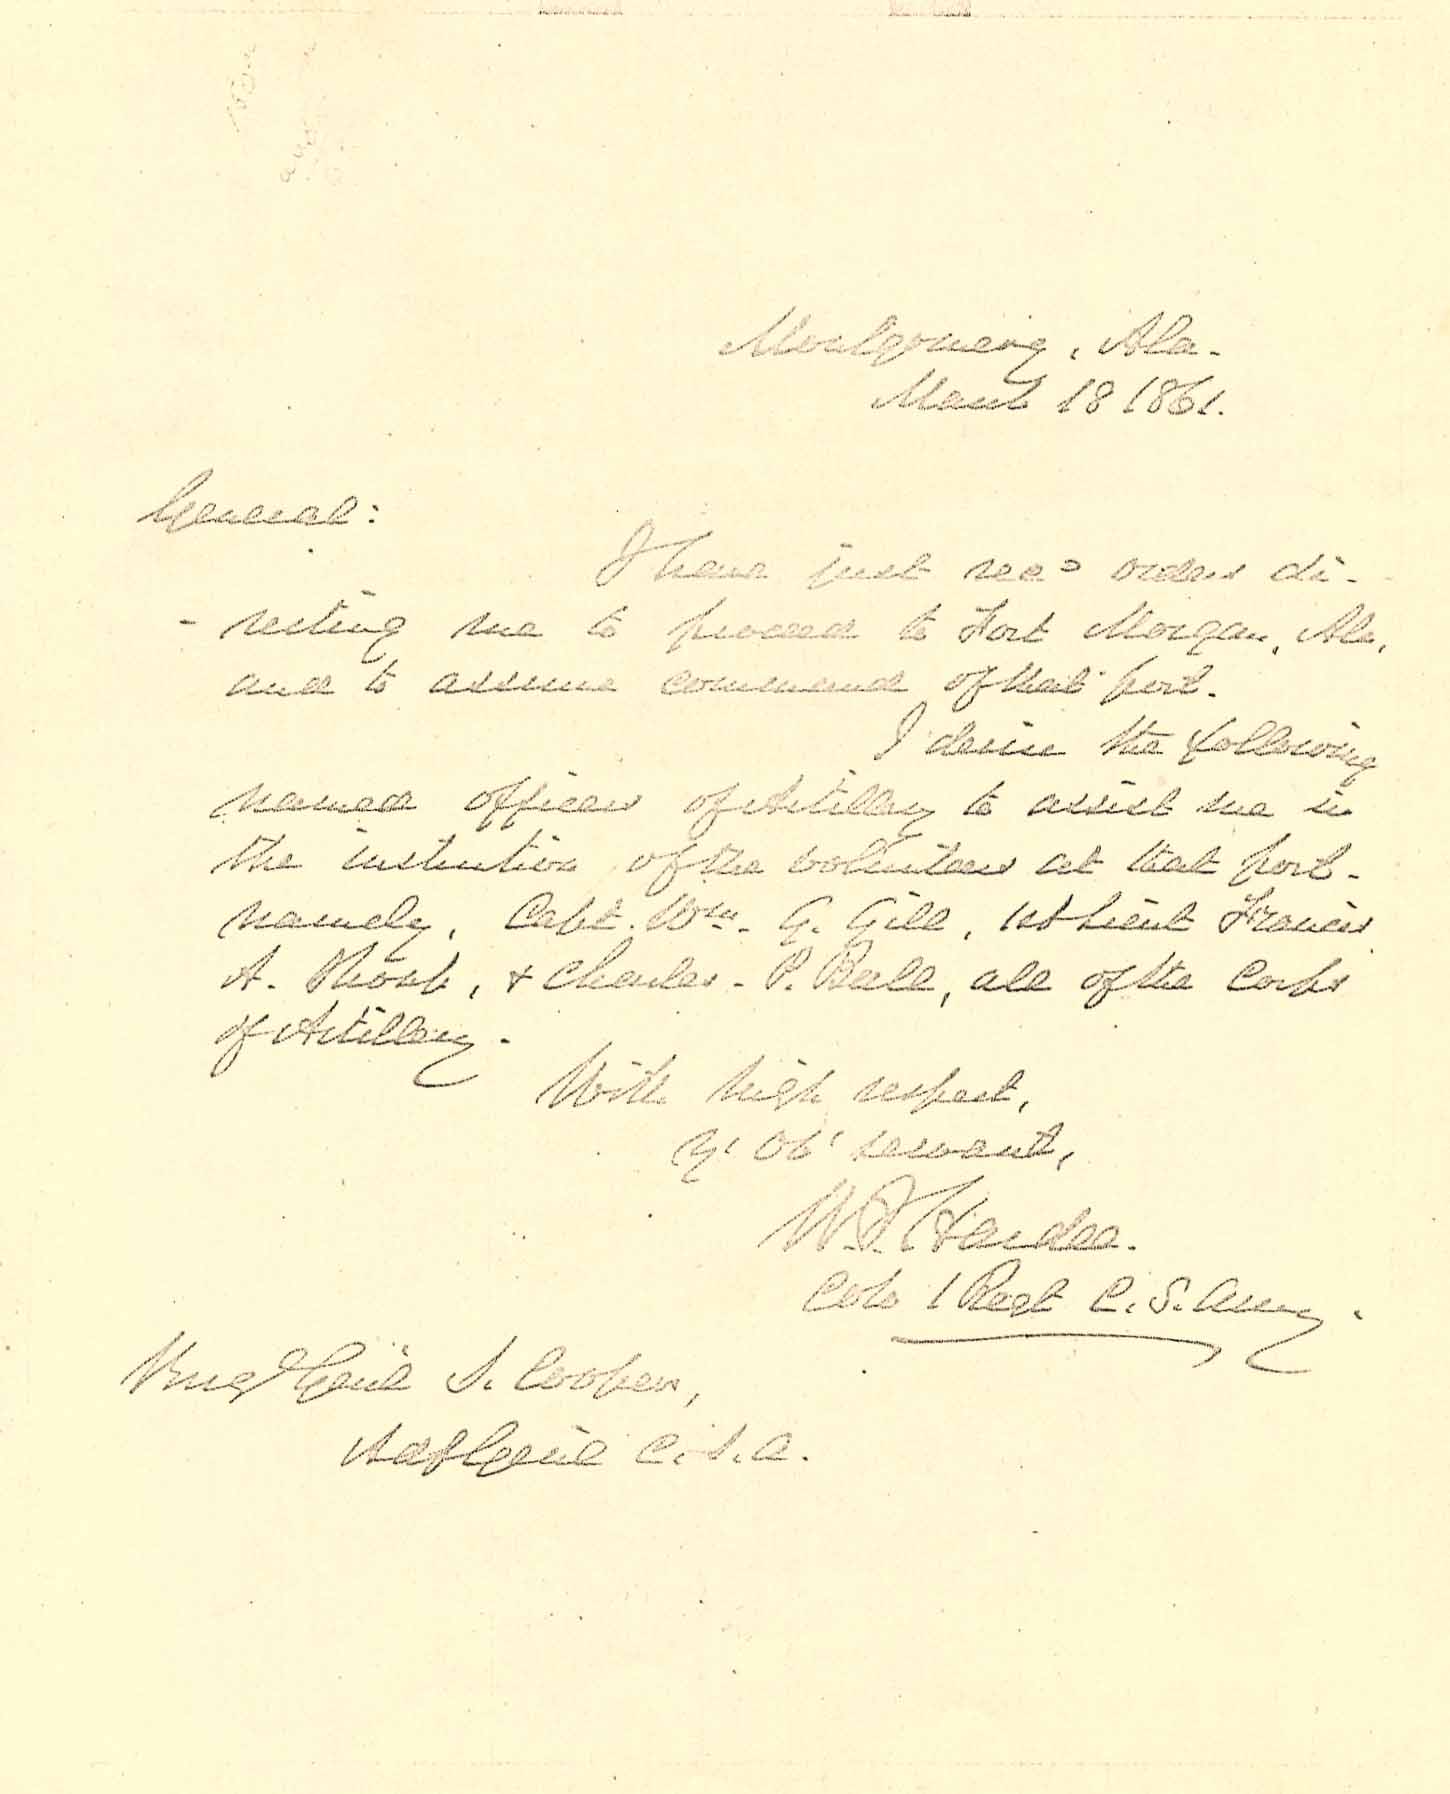 Montgomery, Ala.
March 18 1861.
General:
I have just rec'd orders di-
- recting me to proceed to Fort Morgan, Ala,
and to assume command of that post.
I desire the following
named officers of Artillery to assist me in
the instruction of the volunteers at that post-
namely, Capt. Wm. G. Gill, 1st Lieut Francis
A. Shoup, & Charles P. Ball, all of the Corps
of Artillery.
With high respect,
Yr Obt servant,
W. J. Hardee.
Col. 1 Regt C. S. Army.
Brig Genl S. Cooper,
Adjt Genl C. S. A.